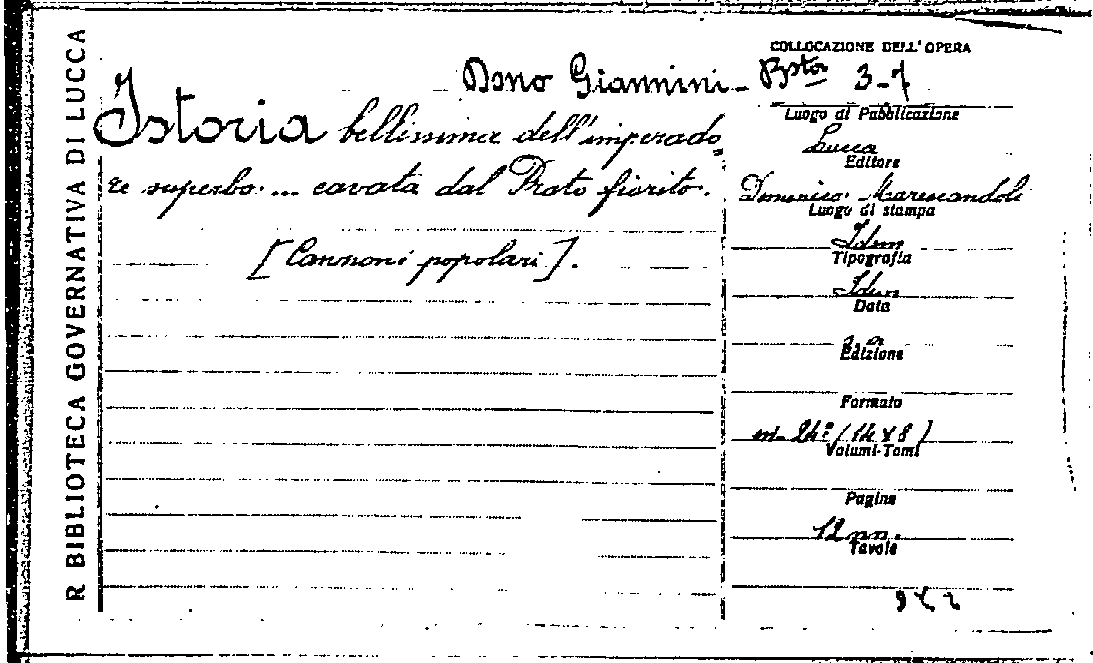 R BIBLIOTECA GOVERNATIVA DI LUCCA
Dono Giannini -
Istoria bellissima dell'imperado-
re superbo. ... cavata dal Prato fiorito.
[Canzoni popolari].
COLLOCAZIONE DELL'OPERA
Bstor 3-7
Luogo di Pubblicazione
Lucca
Editore
Domenico Marescandoli
Luogo di stampa
Idem
Tipografia
Idem
Data
s. a.
Edizione
Formato
in-24° (14 x 8)
Volumi-Tomi
Pagine
12 nn.
Tavole